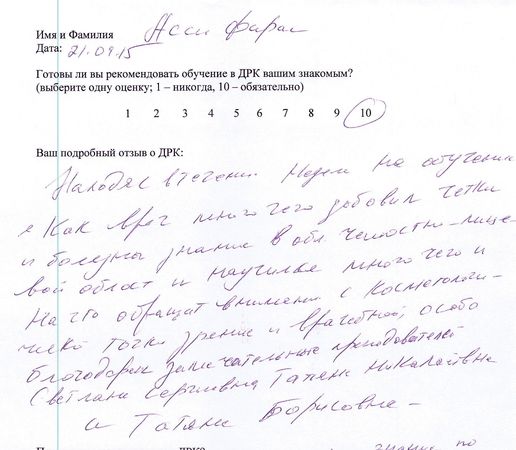 Имя и Фамилия Асси Фарас
Дата: 21.09.15
Готовы ли вы рекомендовать обучение в ДРК вашим знакомым?
(выберите одну оценку; 1 – никогда, 10 – обязательно)
1 2 3 4 5 6 7 8 9 10
Ваш подробный отзыв о ДРК:
Находяс втечении Недели на обучении
я Как врач много чего добовил четки
и болезны знание в обл челюстно-лице-
вой област и научилсе много чего и
На что обращат внимени с косметологи-
ческо точки зрение и врачебной, особо
благодарен замечательные преподователей
Светлане Сергиевна Татяне Николаивне
и Татяне Борисовне -
знание по